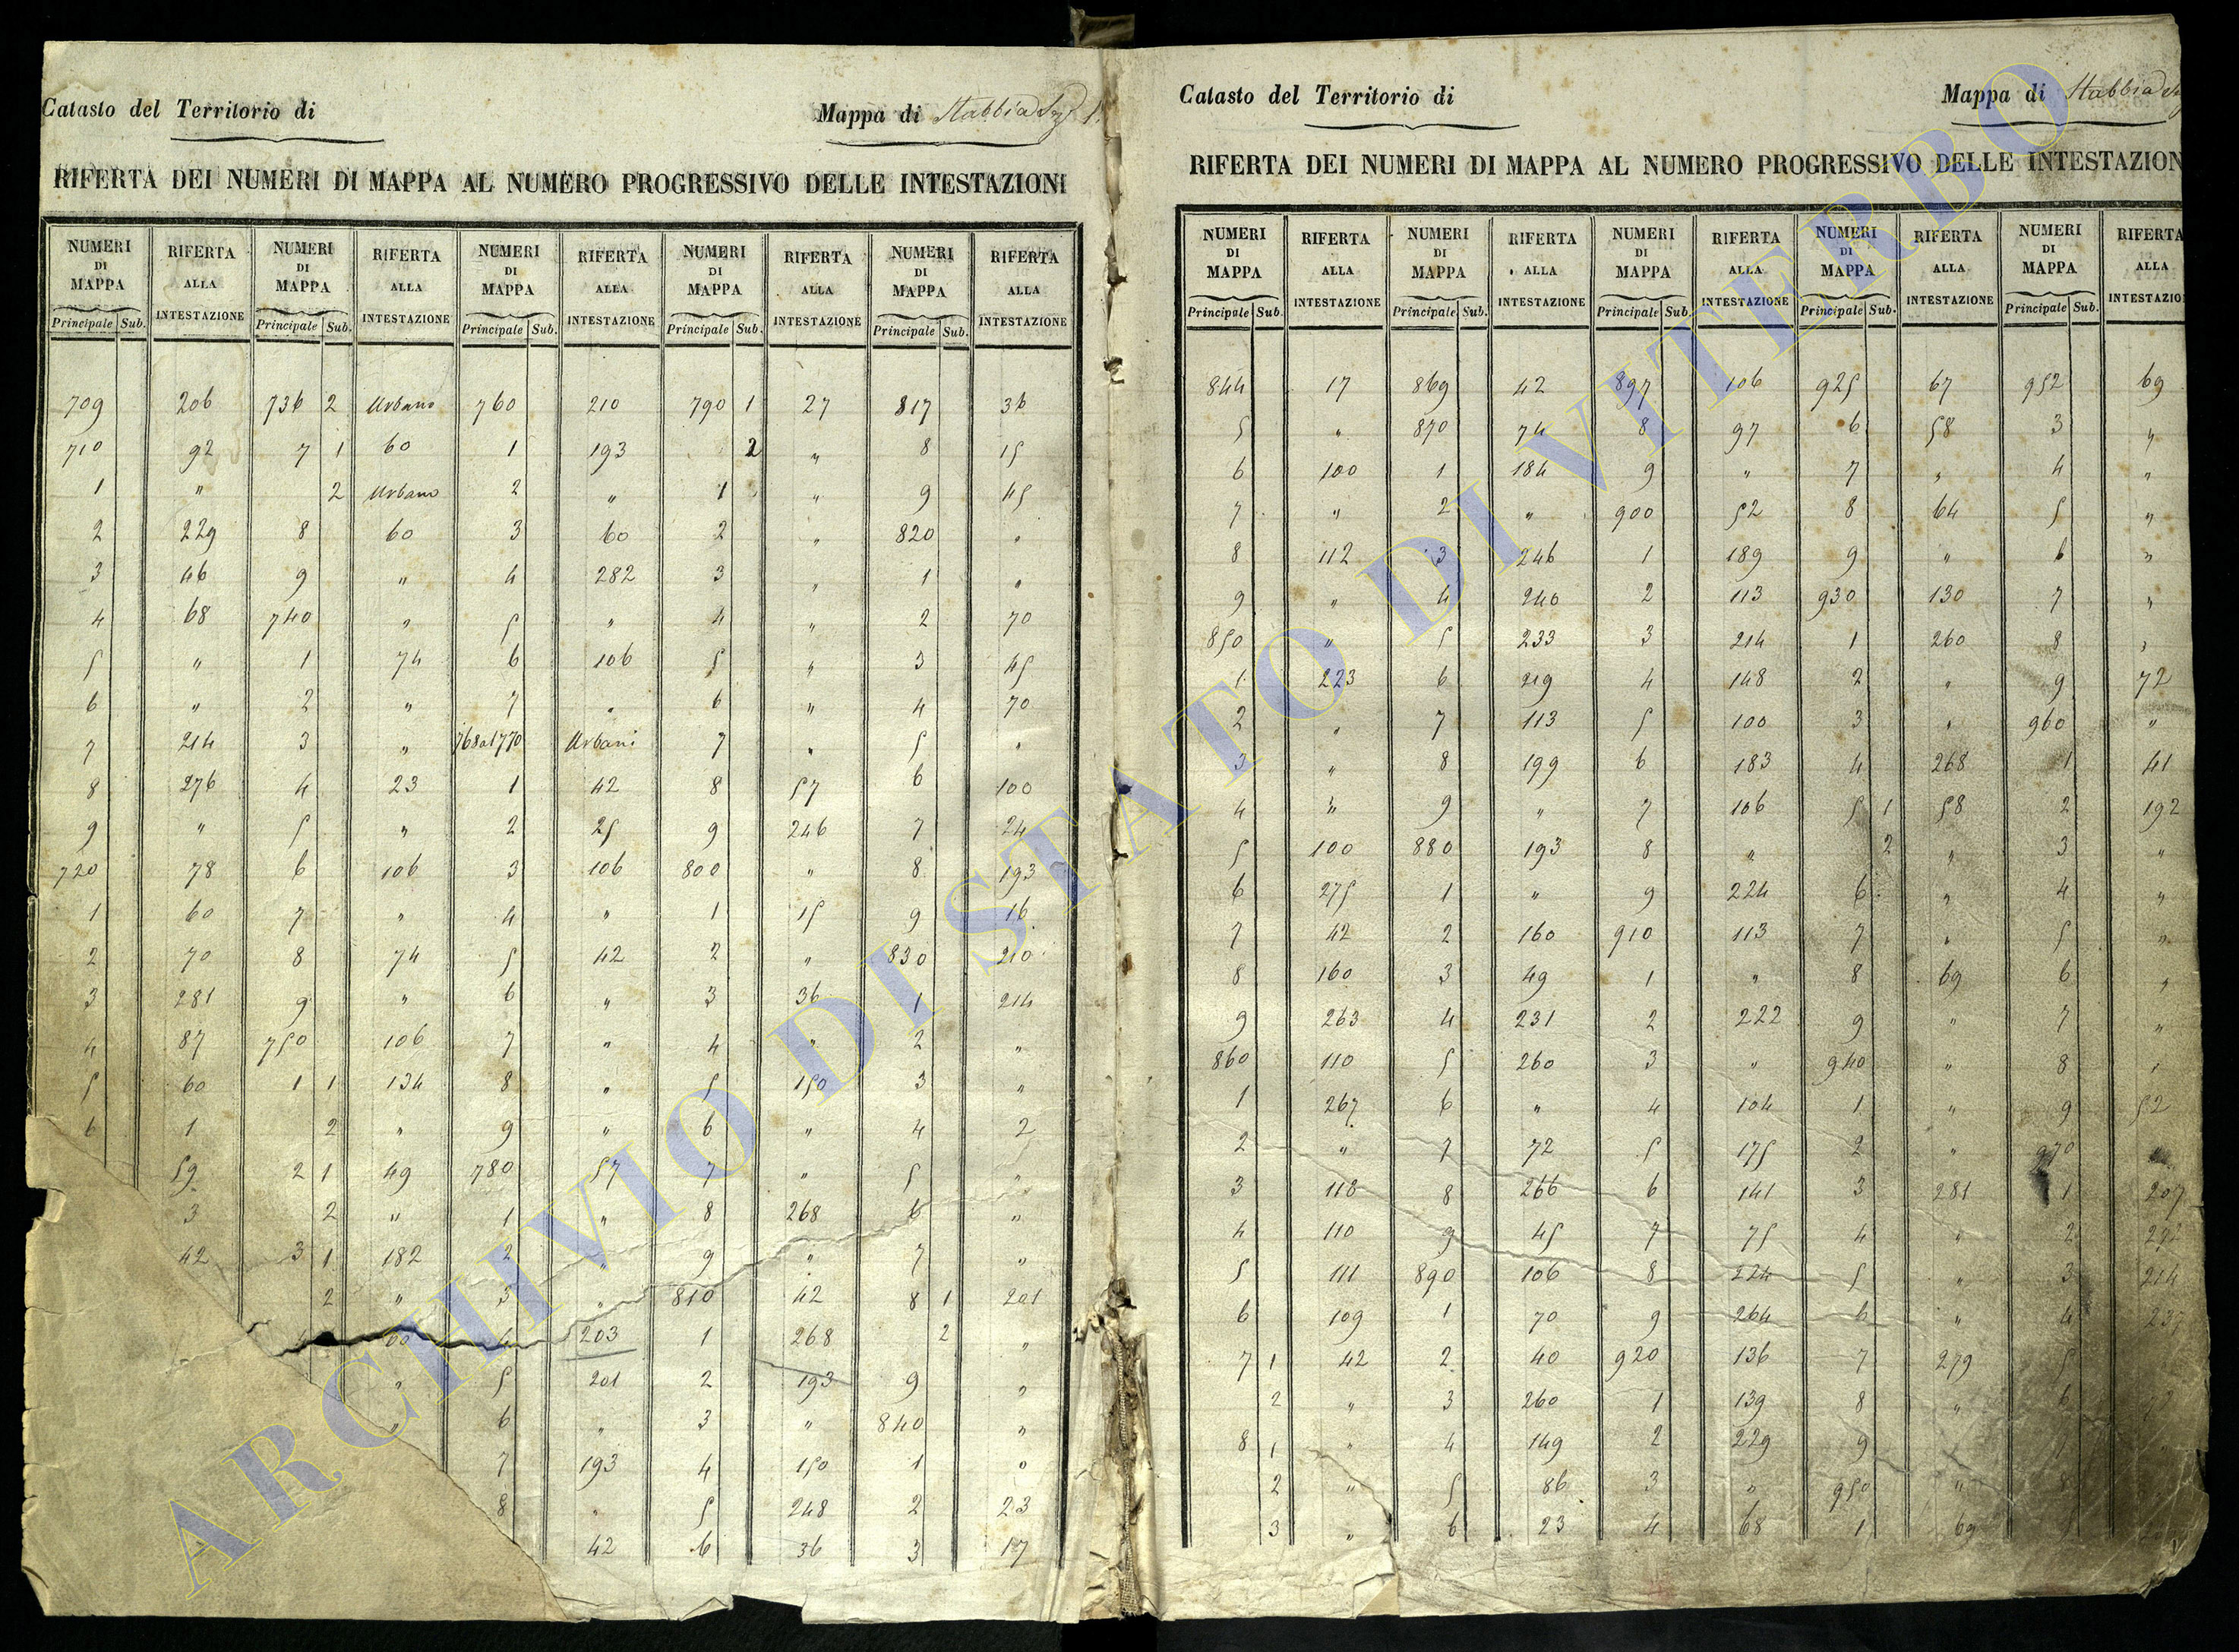 Catasto del Territorio di
Mappa di Stabbia
RIFERTA DEI NUMERI DI MAPPA AL NUMERO PROGRESSIVO DELLE INTESTAZIONI
NUMERI DI MAPPA RIFERTA ALLA INTESTAZIONE NUMERI DI MAPPA RIFERTA ALLA INTESTAZIONE NUMERI DI MAPPA RIFERTA ALLA INTESTAZIONE NUMERI DI MAPPA RIFERTA ALLA INTESTAZIONE NUMERI DI MAPPA RIFERTA ALLA INTESTAZIONE
Principale Sub. Principale Sub. Principale Sub. Principale Sub. Principale Sub.
709 206 736 2 Urbano 760 210 790 1 27 817 36
710 92 7 1 60 1 193 2 " 8 15
1 " 2 Urbano 2 " 1 " 9 45
2 229 8 60 3 60 2 " 820 "
3 46 9 " 4 282 3 " 1 "
4 68 740 " 5 " 4 " 2 70
5 " 1 74 6 106 5 " 3 45
6 " 2 " 7 " 6 " 4 70
7 214 3 " 768 al 770 Urbani 7 " 5 "
8 276 4 23 1 42 8 57 6 100
9 " 5 " 2 25 9 246 7 24
720 78 6 106 3 106 800 " 8 193
1 60 7 " 4 " 1 15 9 16
2 70 8 74 5 42 2 " 830 210
3 281 9 " 6 " 3 36 1 214
4 87 750 106 7 " 4 " 2 "
5 60 1 1 134 8 " 5 150 3 "
6 1 2 " 9 " 6 " 4 2
59 2 1 49 780 57 7 " 5 "
3 2 " 1 " 8 268 6 "
42 3 1 182 2 " 9 " 7 "
2 " 3 " 810 42 8 1 201
203 1 268 2 "
" 5 201 2 193 9 "
" 6 " 3 " 840 "
7 193 4 150 1 "
8 " 5 248 2 23
42 6 36 3 17
Catasto del Territorio di
Mappa di Stabbia
RIFERTA DEI NUMERI DI MAPPA AL NUMERO PROGRESSIVO DELLE INTESTAZION
NUMERI DI MAPPA RIFERTA ALLA INTESTAZIONE NUMERI DI MAPPA RIFERTA ALLA INTESTAZIONE NUMERI DI MAPPA RIFERTA ALLA INTESTAZIONE NUMERI DI MAPPA RIFERTA ALLA INTESTAZIONE NUMERI DI MAPPA RIFERTA ALLA INTESTAZIO
Principale Sub. Principale Sub. Principale Sub. Principale Sub. Principale Sub.
844 17 869 42 897 106 925 67 952 69
5 " 870 74 8 97 6 58 3 "
6 100 1 184 9 " 7 " 4 "
7 " 2 " 900 52 8 64 5 "
8 112 3 246 1 189 9 " 6 "
9 " 4 240 2 113 930 130 7 "
850 " 5 233 3 214 1 260 8 "
1 223 6 219 4 148 2 " 9 72
2 " 7 113 5 100 3 " 960 "
3 " 8 199 6 183 4 268 1 41
4 " 9 " 7 106 5 1 58 2 192
5 100 880 193 8 " 2 " 3 "
6 275 1 " 9 224 6 " 4 "
7 42 2 160 910 113 7 " 5 "
8 160 3 49 1 " 8 69 6 "
9 263 4 231 2 222 9 " 7 "
860 110 5 260 3 " 940 " 8 "
1 267 6 " 4 104 1 " 9 52
2 " 7 72 5 175 2 " 970
3 118 8 266 6 141 3 281 1 207
4 110 9 45 7 75 4 " 2
5 111 890 106 8 224 5 " 3 214
6 109 1 70 9 264 6 " 4
7 1 42 2 40 920 136 7 279 5
2 " 3 260 1 139 8 " 6
8 1 " 4 149 2 229 9
2 " 5 86 3 " 950 " 8
3 " 6 23 4 68 1 69
ARCHIVIO DI STATO DI VITERBO